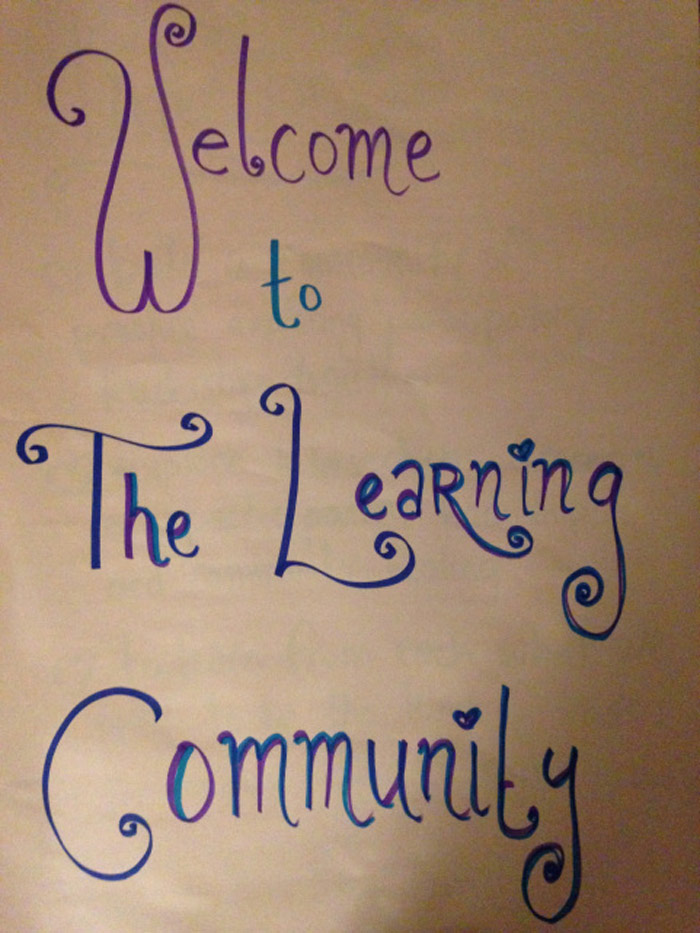 Welcome
to
The Learning
Community